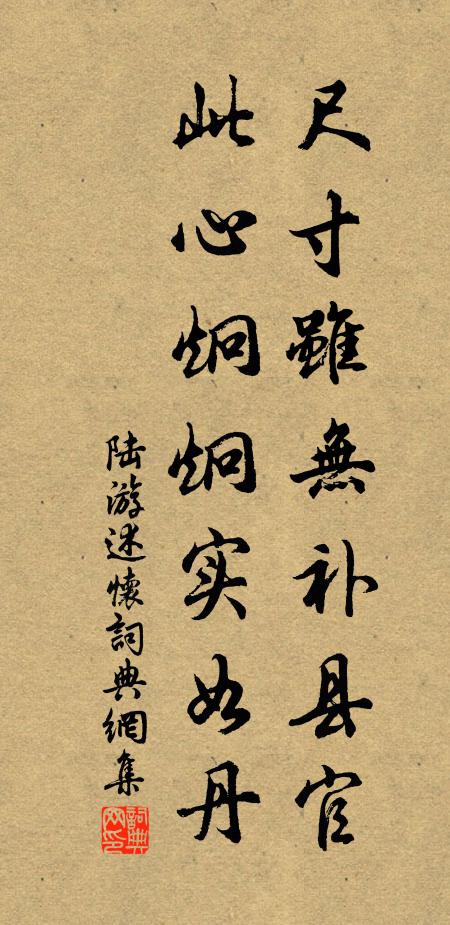 尺寸雖無补县官
此心炯炯实如丹
陆游述懷詞典網集
詞典网印